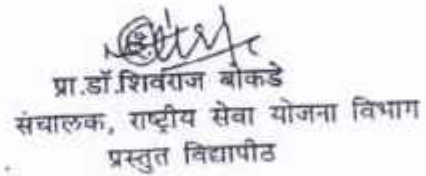 प्रा.डॉ.शिवराज बोकडे
संचालक, राष्ट्रीय सेवा योजना विभाग
प्रस्तुत विद्यापीठ